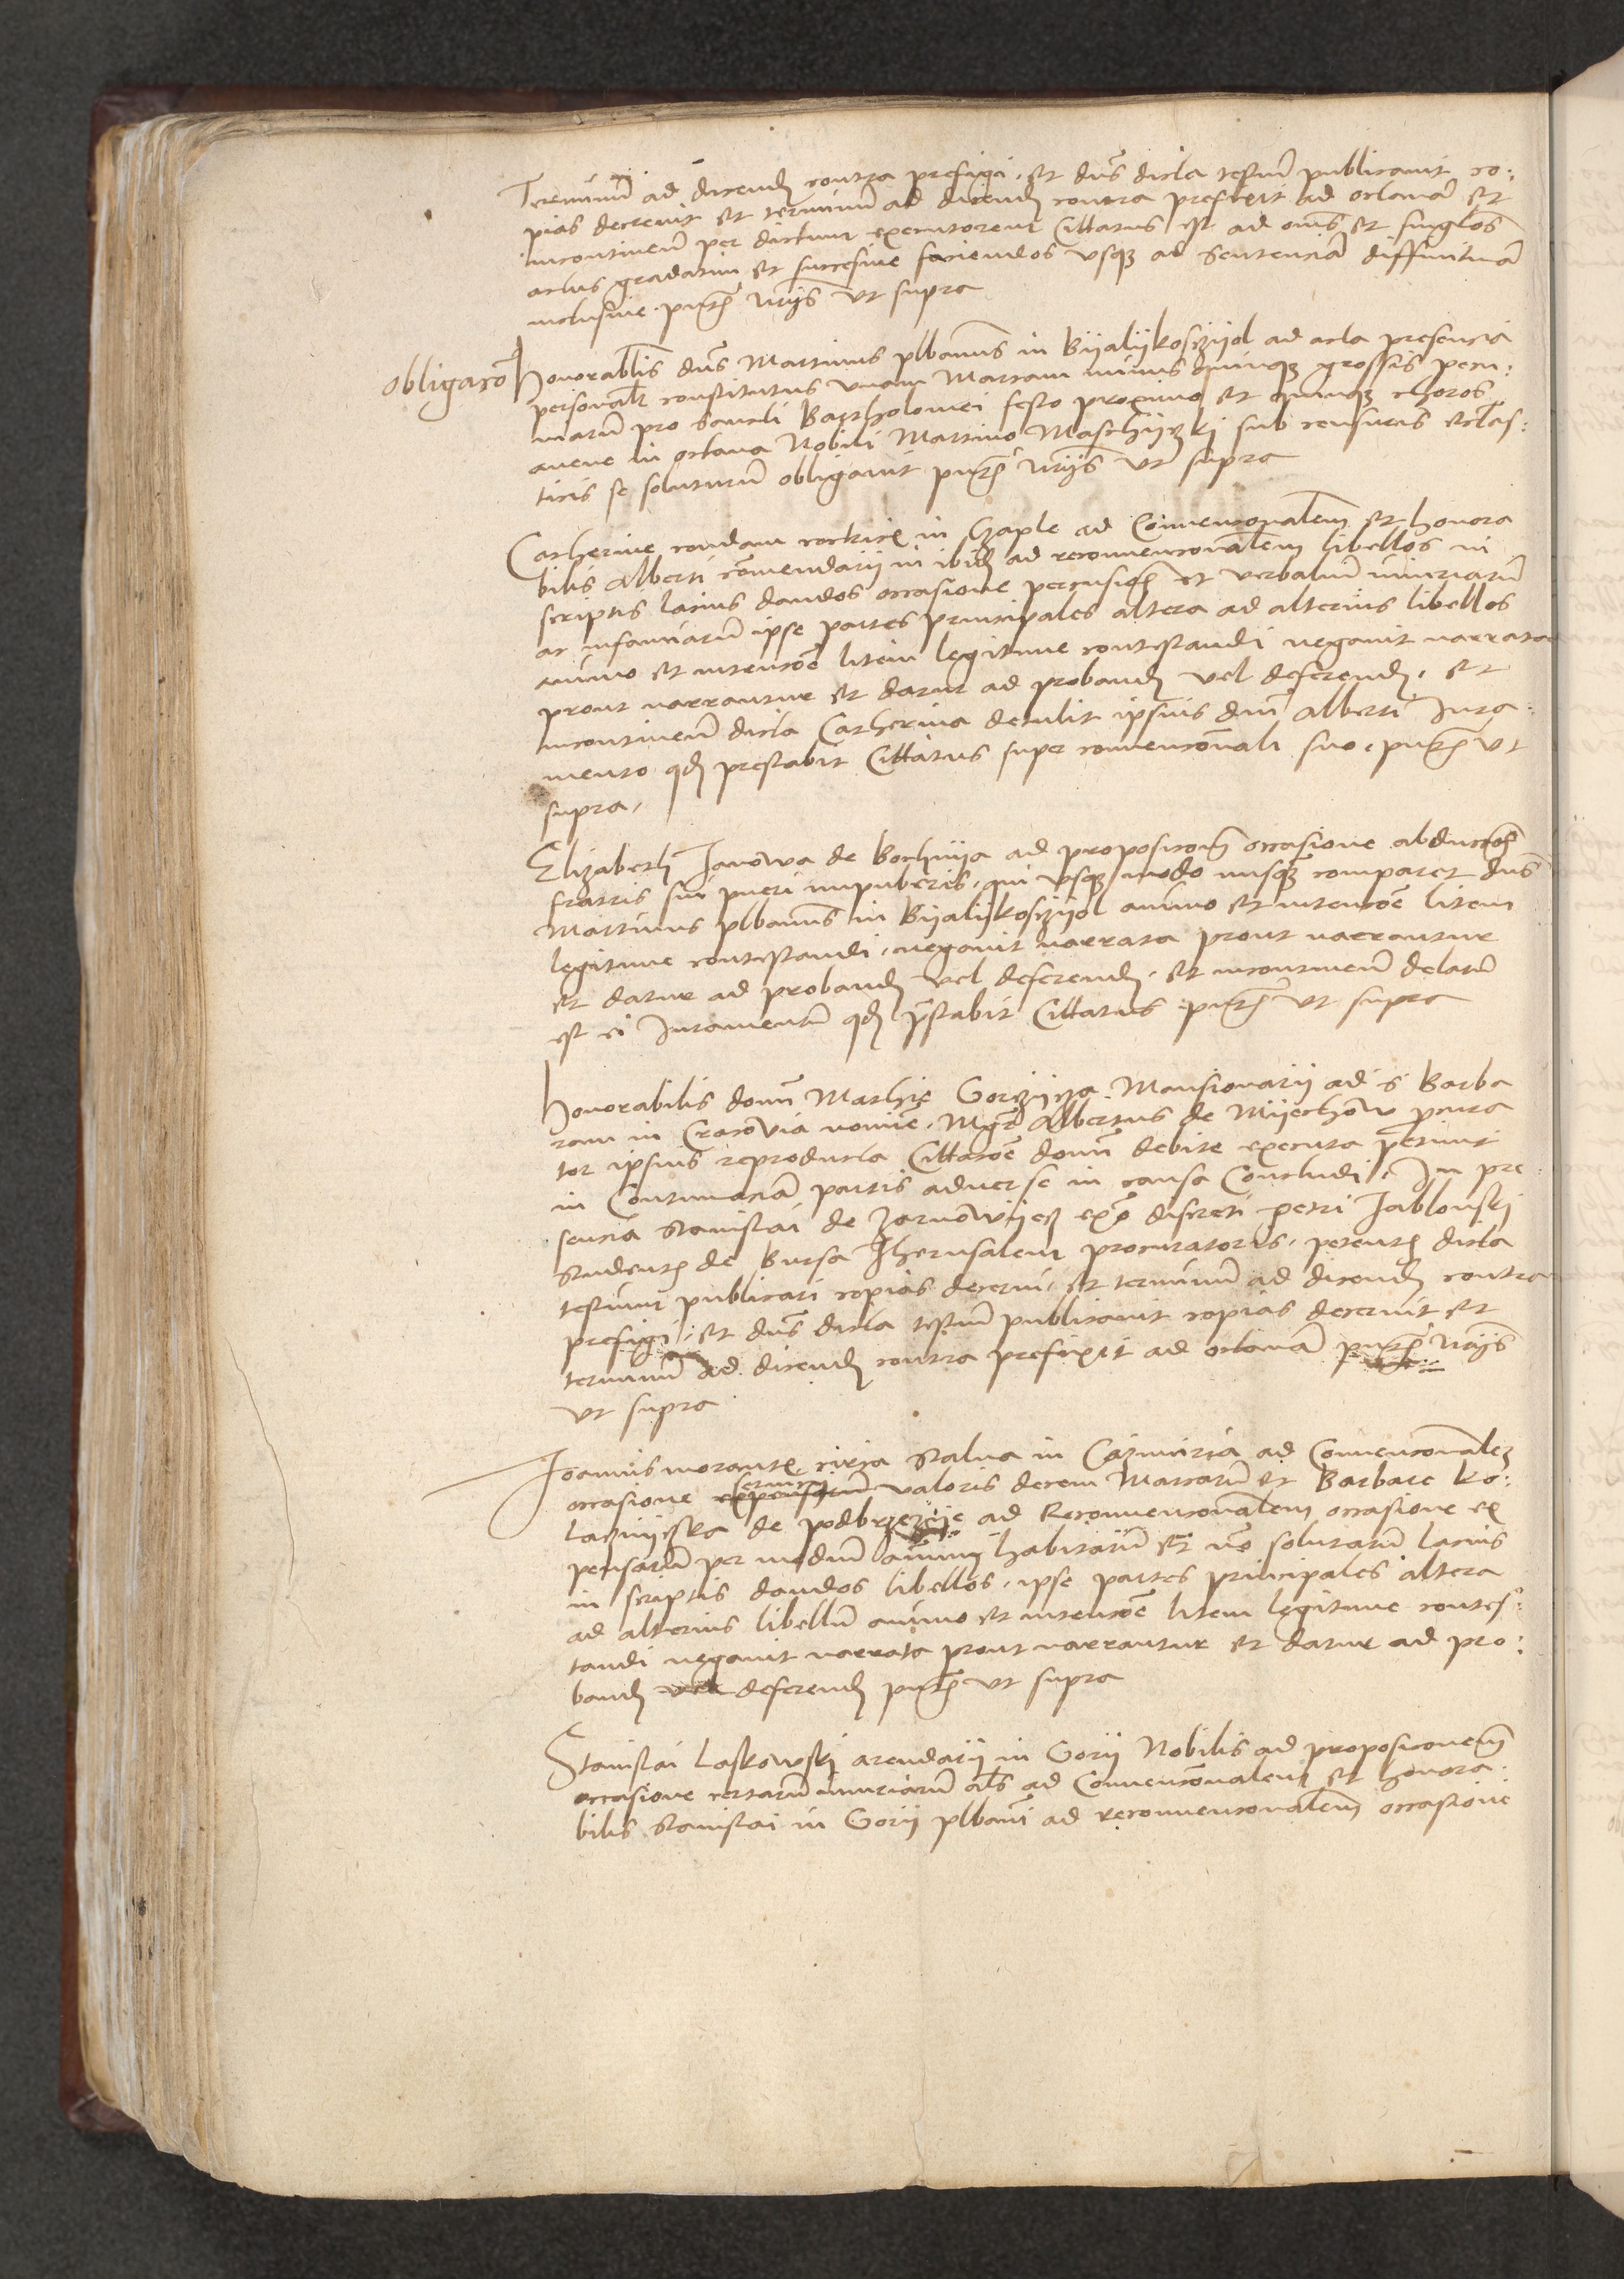 Terminum ad dicend contra prefigi, et dns dicta testium publicavit co:
pias decrevit et terminum ad dicend contra prefixit ad octavam et
incontinenti per dictum executorem Cittatus est ad omnes et singlos
actus gradatim et succesive faciendos usq ad Sententiam diffinitivam
inclusive pntibus ut supra
obligaco
honorabilis dns Martinus plbanus in Biialijkosczijol ad acta presencia
personalr constitutus unam Marcam minus quinq grossis pecu:
niarum pro Sancti Bartholomei festo proximo et quinq choros
avene in octava Nobili Martino Maschijczkj sub censuris eccles:
ticis se soluturum obligavit pntibus ut supra
Catherine condam coctrice in Czaple ad Convenconalem et honora
bilis Alberti comendarii in ibid ad reconvenconalem libellos in
scriptis lacius dandos occasione percusion et verbalium iniuriarum
ac infamiarum ipse partes principales altera ad alterius libellos
animo et intencoe litem legitime contestandi negavit narrata
prout narrantur et datur ad proband vel deferend, et
incontinenti dicta Catherina detulit ipsius dni Alberti Jura:
mento qd prestabit Cittatus super convenconali suo, pntibus ut
supra,
Elizabeth Janowa de Bochnija ad proposicom occasione abduccois
fratris sui pueri inpuberis, qui usq modo nusq comparet dns
Martinus plbanus in Biialijkosczijol animo et intencoe litem
legitime contestandi, negavit narrata prout narrantur
et datur ad proband vel deferend, et incontinenti delatum
est ei Juramentum qd pstabit Cittatus pntibus ut supra
honorabilis domi Mathie Gorczijcza Mansionarij ad S Barba
ram in Cracovia nomine, Mgr Albertus de Mijechow procura
tor ipsius reproducta Cittacoe domi debite executa petiuit
in Contumaciam partis adverse in causa Concludi, In pre:
sencia Stanislai de Zarnowijecz ex discreti petri Jablonskj
Studentis de Bursa Jherusalem procuratoris, petentis dicta
testium publicari copias decerni, et terminum ad dicend contra
prefigi, et dns dicta testium publicavit copias decrevit et
terminum ad dicend contra prefixit ad octavam pntibus
ut supra
Joannis morantis circa Stalua in Cazimiria ad Convenconalem
occasione valoris decem Marcarum et Barbare Ko:
lacznijska de podbrzezije ad Reconvenconalem occasione ex
pensarum per medium annum habitarum et no solutarum lacius
in scriptis dandos libellos, ipse partes principales altera
ad alterius libellum animo et intencoe litem legitime contes:
tandi negavit narrata prout narrantur et datur ad pro:
band vel deferend pntibus ut supra
Stanislai Laskowskj arendarij in Gorij Nobilis ad proposiconem
occasione certarum iniuriarum als ad Convenconalem et honora:
bilis Stanislai in Gorij plbani ad reconvenconalem occasione